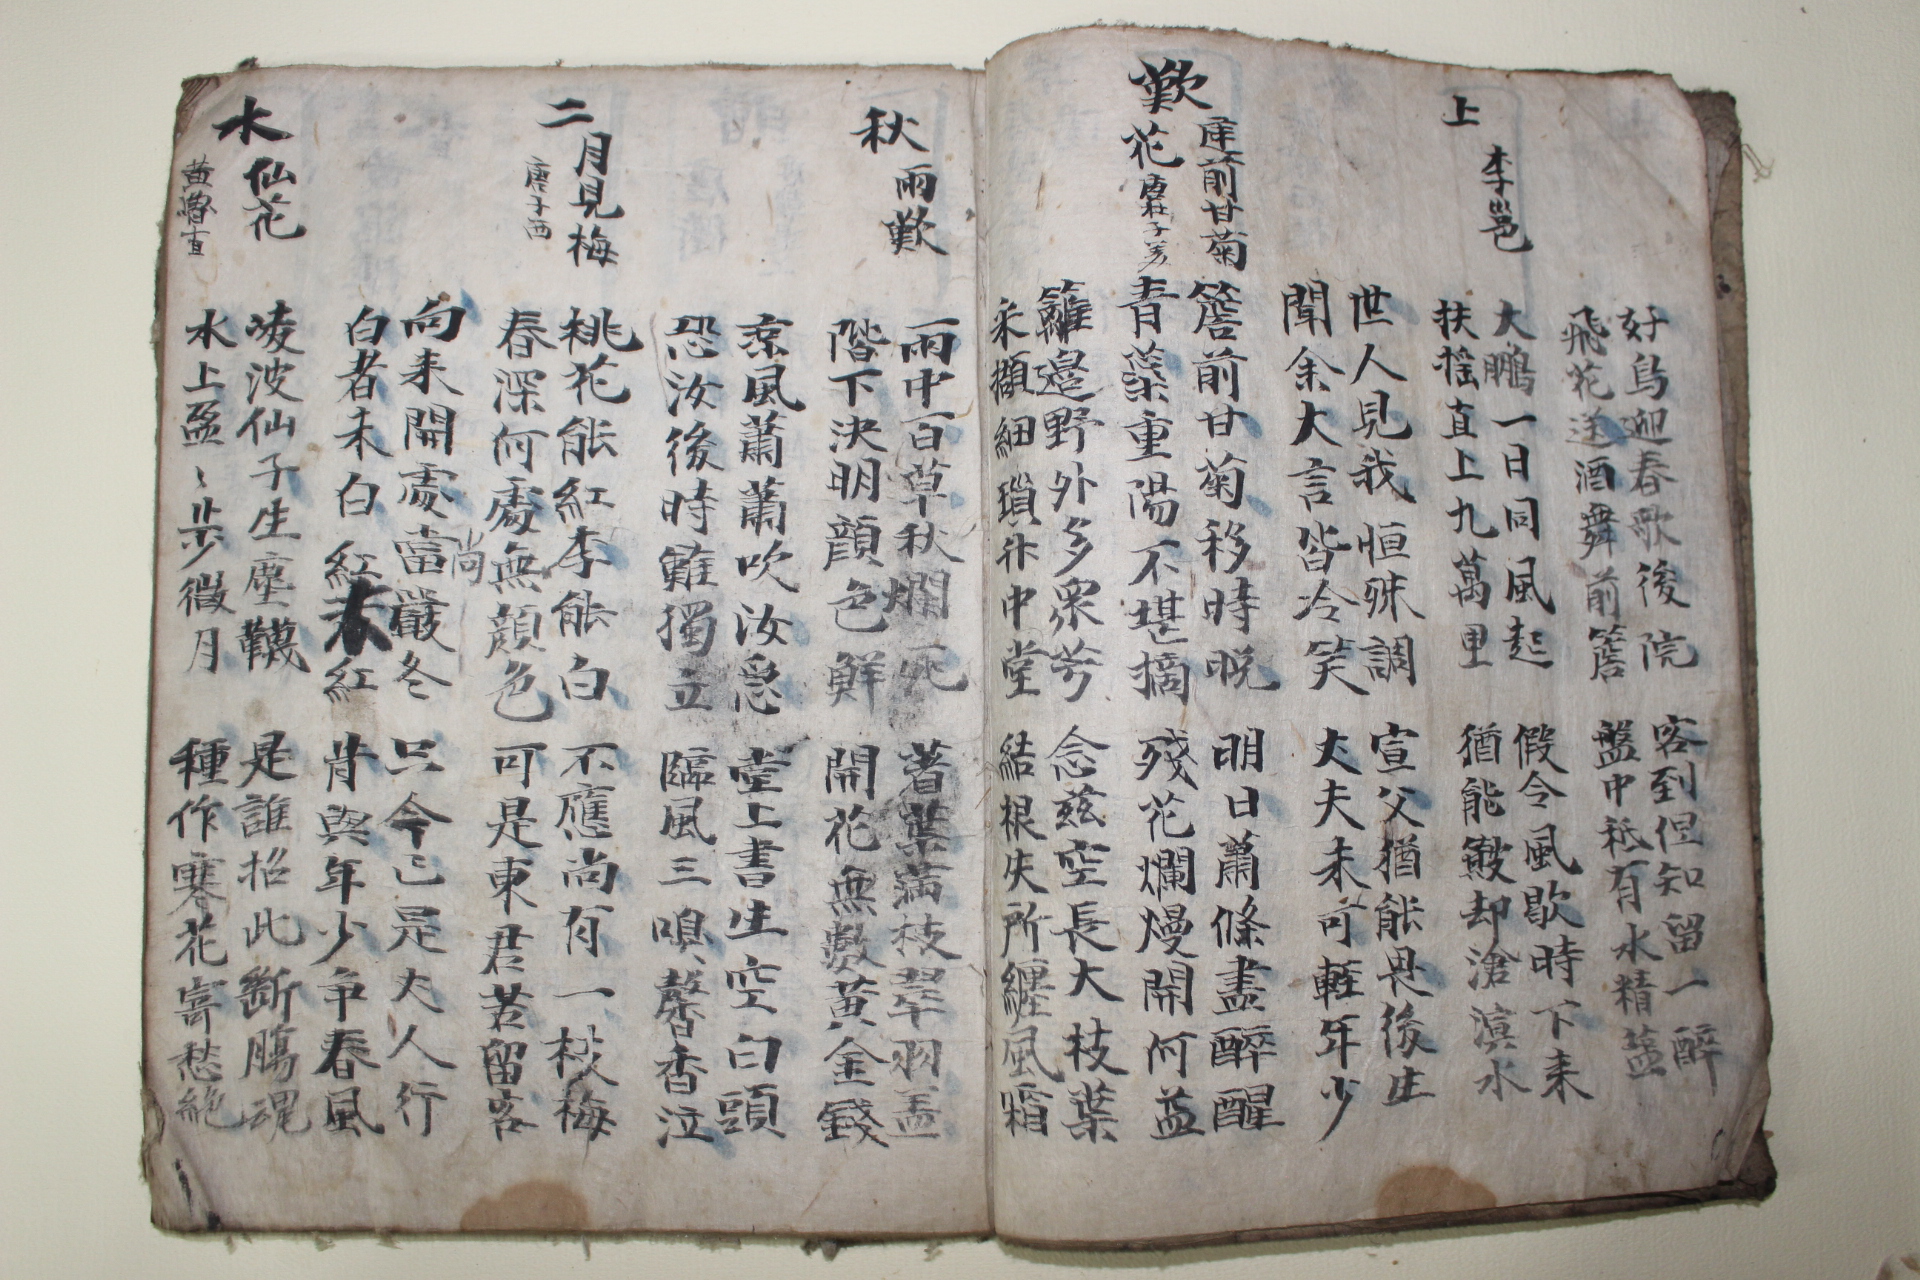 好鳥迎春歌後院 客到但知留一醉
飛花送酒舞前簷 盤中祗有水精盐
上李邕
大鵬一日同風起 假令風歇時下来
扶摇直上九萬里 猶能皷却滄溟水
世人見我恒殊調 宣父猶能畏後生
聞余大言皆冷笑 丈夫未可輕年少
歎庭前甘菊花 唐杜子美
簷前甘菊移時晚 明日蕭條盡醉醒
青蘂重陽不堪摘 残花爛熳開何益
籬邉野外多衆芳 念兹空長大枝葉
采擷細瑣升中堂 結根失所纏風霜
秋雨歎
雨中百草秋爛死 著葉滿枝翠羽盖
階下决明顔色鮮 開花無數黃金錢
凉風蕭蕭吹汝急 堂上書生空白頭
恐汝後時難獨立 臨風三嗅馨香泣
二月見梅 唐子西
桃花能紅李能白 不應尚有一枝梅
春深何處無顔色 可是東君苦留客
向来開處當嚴冬 只今已是丈人行
尚
白者未白紅未紅 肯與年少爭春風
水仙花 黃魯直
凌波仙子生塵韈 是誰招此斷腸魂
水上盈〻步微月 種作寒花寄愁絶